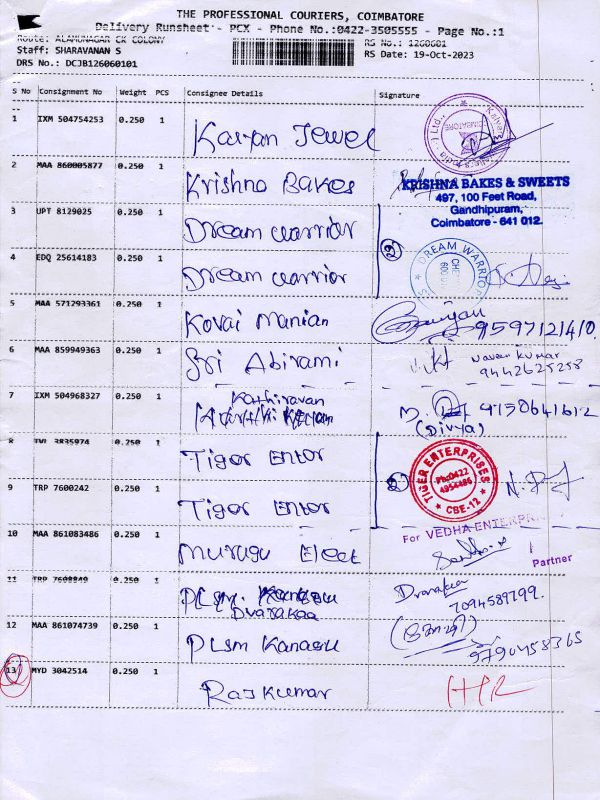 THE PROFESSIONAL COURIERS, COIMBATORE
Delivery Runsheet - PCX - Phone No.:0422-3505555 - Page No.:1
Route: ALAMUNAGAR CK COLONY RS No.: 1260601
Staff: SHARAVANAN S RS Date: 19-Oct-2023
DRS No.: DCJB126060101
S No Consignment No Weight PCS Consignee Details Signature
1 IXM 504754253 0.250 1 Kalyan Jewel
COIMBATORE
2 MAA 860005877 0.250 1 Krishna Bakes
KRISHNA BAKES & SWEETS
497, 100 Feet Road,
Gandhipuram,
Coimbatore - 641 012.
3 UPT 8129025 0.250 1 Dream warrior
2
4 EDQ 25614183 0.250 1 Dream warrior
DREAM WARRIOR
5 MAA 571293361 0.250 1 Kovai Manian 9597121410
6 MAA 859949363 0.250 1 Sri Abirami Navan kumar
9442625258
7 IXM 504968327 0.250 1 Kathiravan M. 9750641612
(Divya)
8 IVL 3835974 0.250 1 Tiger Enter
2
TIGER ENTERPRISES
Ph:0422
4954486
CBE-12
9 TRP 7600242 0.250 1 Tiger Enter
For VEDHA ENTERPRI
10 MAA 861083486 0.250 1 Murugu Elect
Partner
11 TRP 7608849 0.250 1 PLSM.
Dvarakaa
Dvarakaa
7094589799.
12 MAA 861074739 0.250 1 PLSM Kanagu
9790458365
13 MYD 3042514 0.250 1 Rajkumar